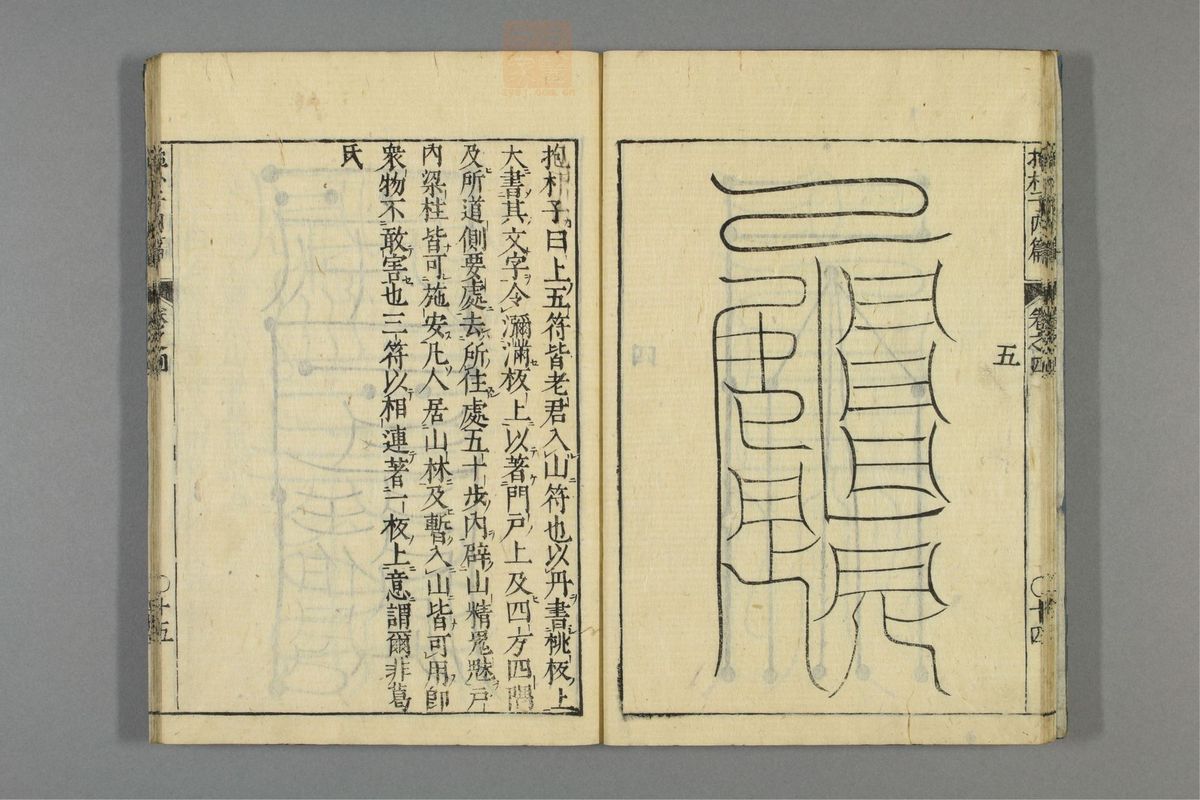 抱朴子內篇 卷之四 〇十四
五
抱朴子曰上五符皆老君入山符也以丹書桃板上
大書其文字令瀰滿板上以著門戸上及四方四隅
及所道側要處去所住處五十步內辟山精鬼魅戸
內梁柱皆可施安凢人居山林及暫入山皆可用卽
衆物不敢害也三符以相連著一板上意謂爾非葛
氏